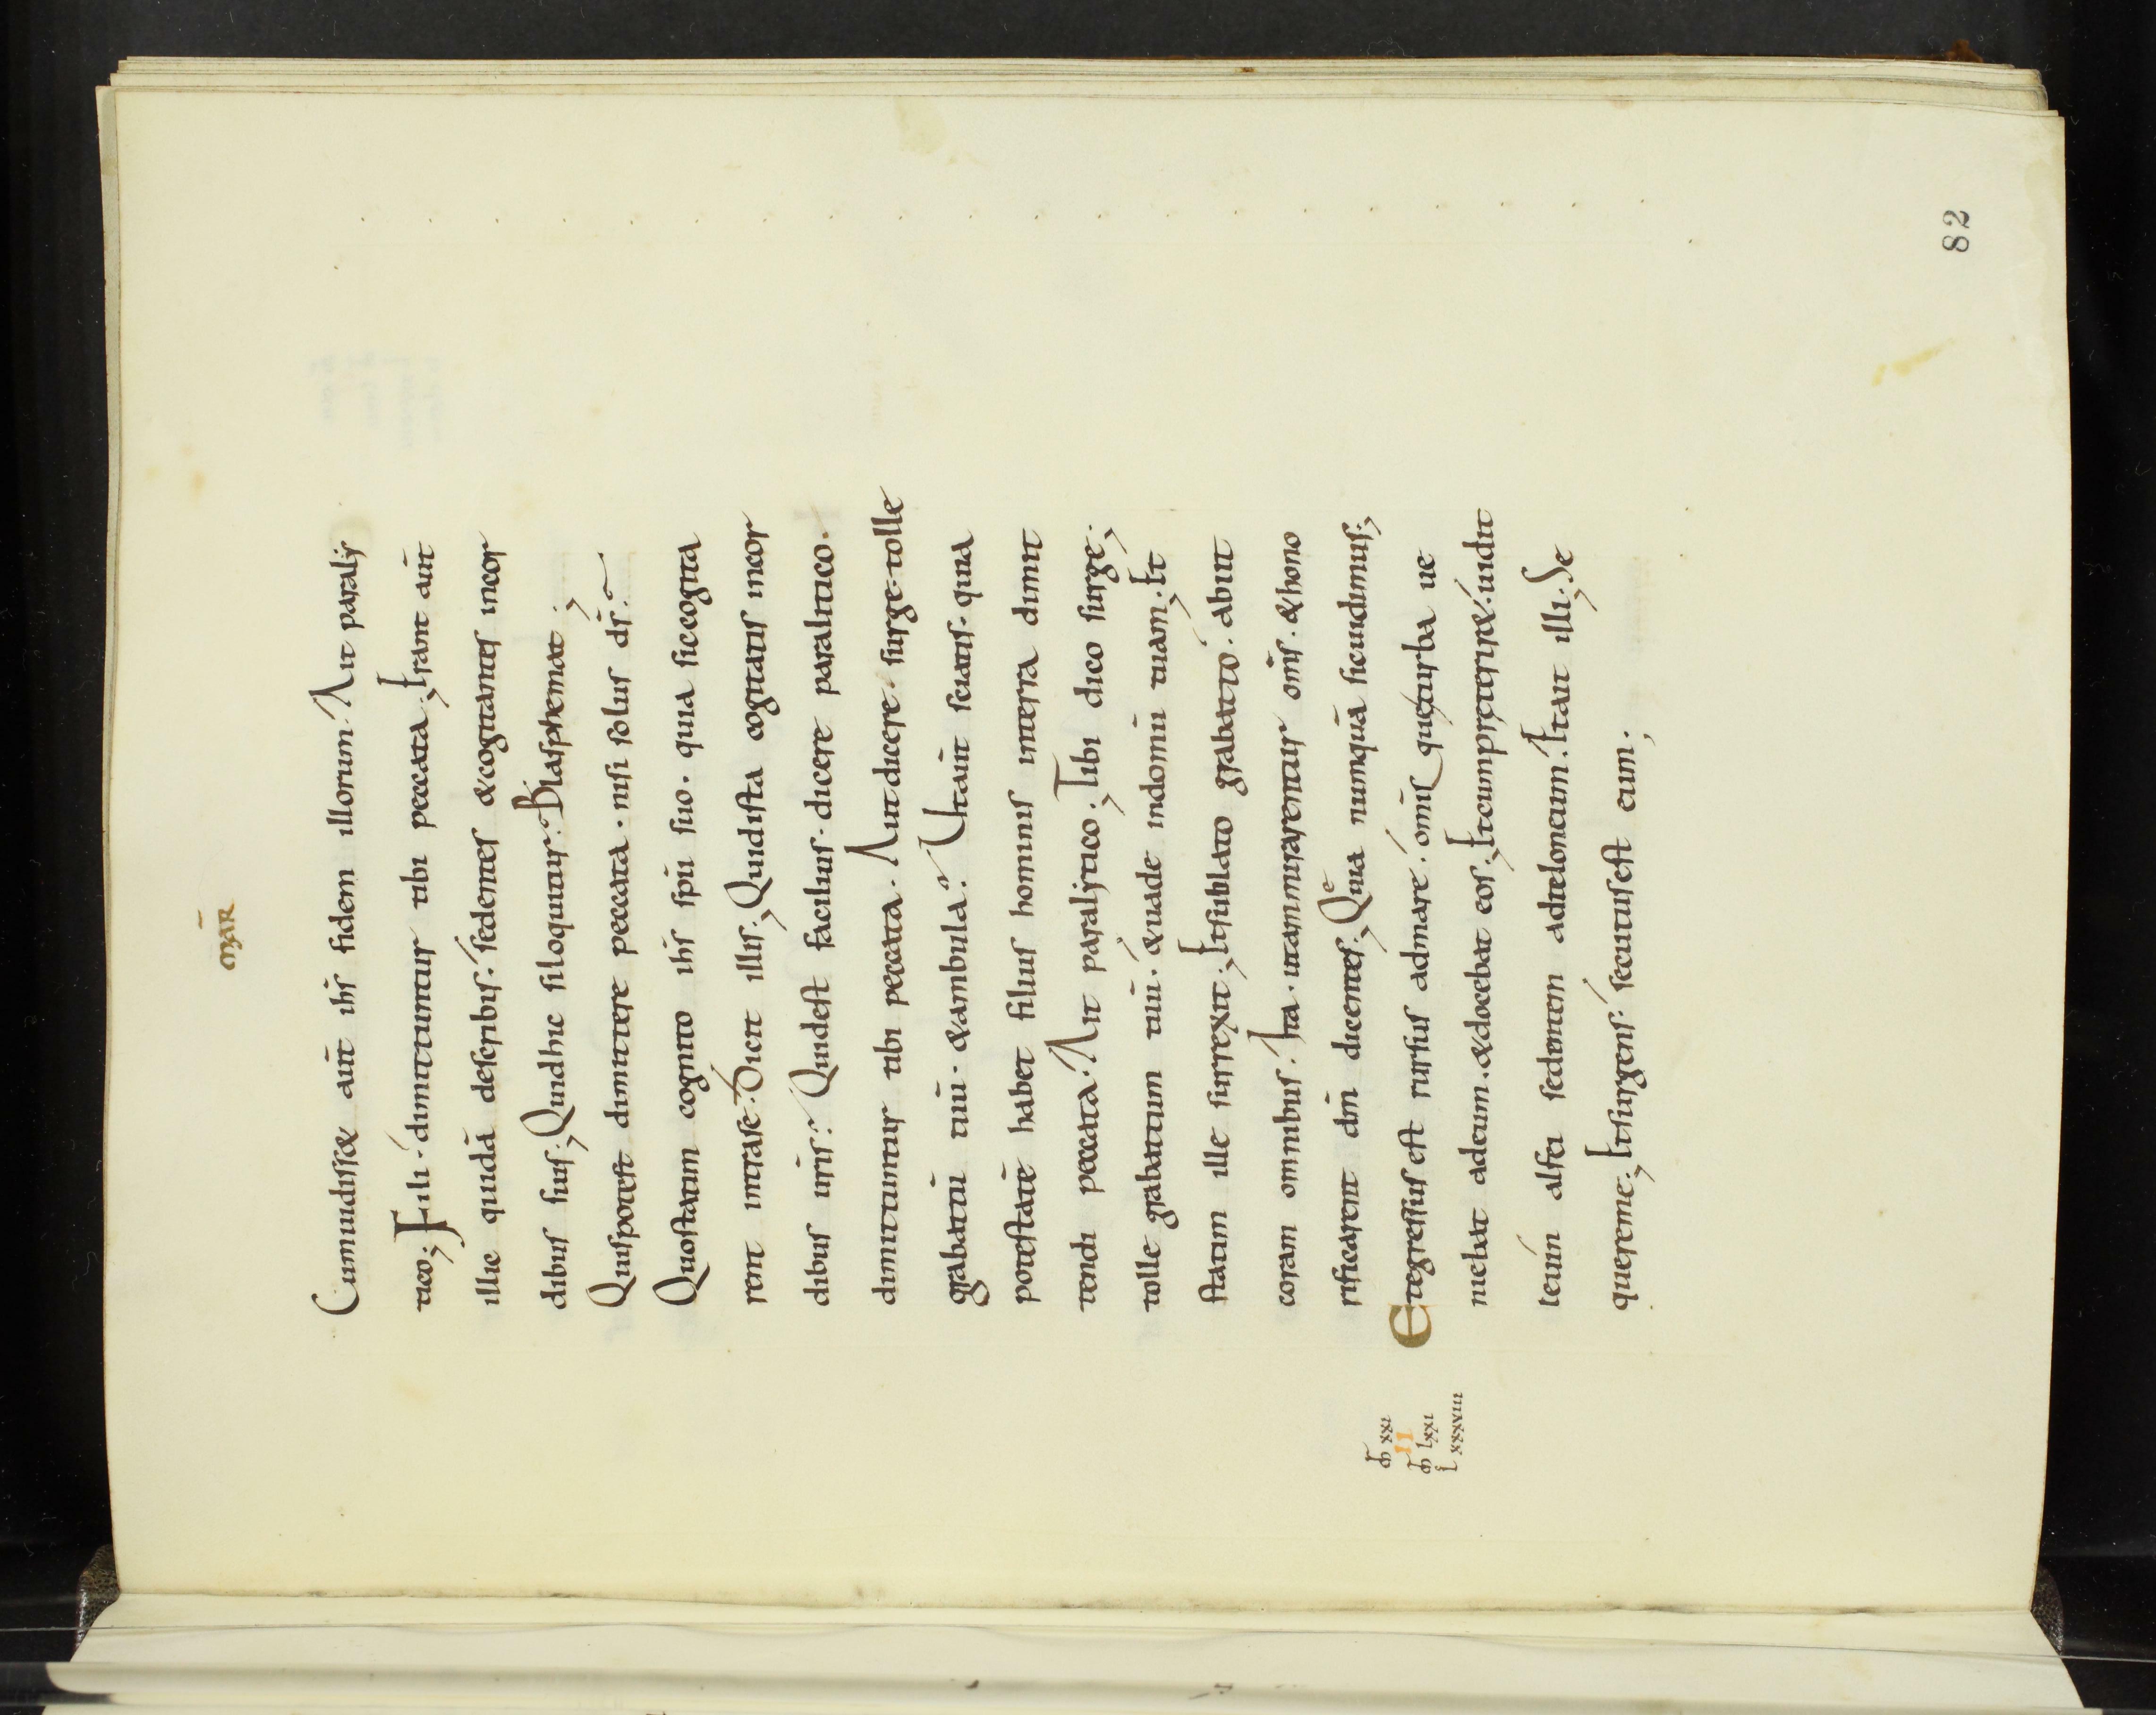 82
MAR̄
Cumuidiſſ& aut̄ ihſ̄ fidem illorum. Ait paraly
tico; Fili. dimittuntur tibi peccata. Erant aut̄
illic quidā deſcribuſ. ſedenteſ &cogitanteſ incor
dibuſ ſuiſ; Quidhic ſiloquitur. Blaſphemat;
Quiſpoteſt dimittere peccata. niſi ſoluſ dſ̄.
Quoſtatim cognito ihſ̄ ſpū ſuo. quia ſiccogita
rent intraſe. Dicit illiſ; Quidiſta cogitatiſ incor
dibuſ ur̄iſ? Quideſt faciliuſ. dicere paralitico.
dimittuntur tibi peccata. Aut dicere. ſurge. tolle
grabattū tuū. &ambula? Utaut̄ ſciatiſ. quia
poteſtatē habet filiuſ hominiſ interra dimit
tendi peccata. Ait paralytico; Tibi dico ſurge;
tolle grabattum tuū. &uade indomū tuam; Et
ſtatim ille ſurrexit; Etſublato grabatto. abiit
coram omnibuſ. Ita. utammirarentur om̄ſ. &hono
rificarent dm̄ dicenteſ; Quia numquā ſicuidimuſ;
m̄ xxi
II
m̄ lxxi
l xxxviii
Etegreſſuſ eſt rurſuſ admare. om̄iſ quęturba ue
niebat adeum. &docebat eoſ; Etcumpręterir&. uidit
leuin alfei ſedentem adteloneum. Etait illi; Se
quereme; Etſurgenſ. ſecutuſeſt eum;